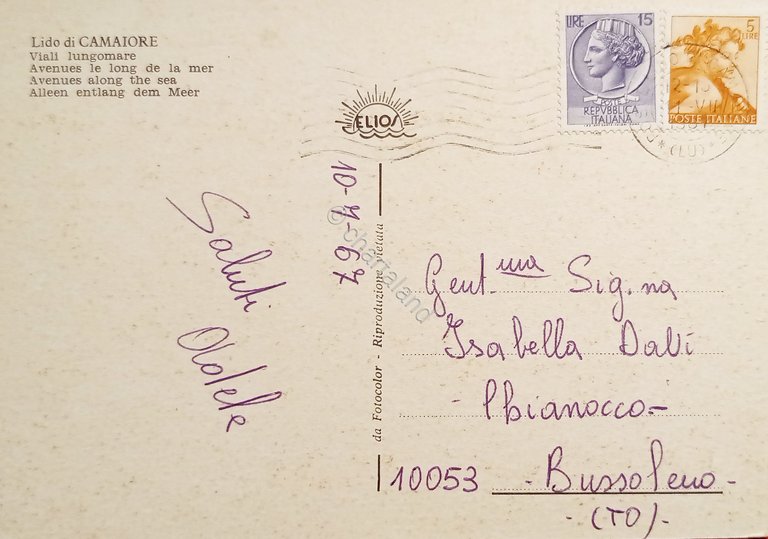 Lido di CAMAIORE
Viali lungomare
Avenues le long de la mer
Avenues along the sea
Alleen entlang dem Meer
ELIOS
LIRE 15
POSTE
REPVBBLICA
ITALIANA
5
LIRE
POSTE ITALIANE
(LU)
10-7-67
Saluti
Adele
© chartaland
da Fotocolor - Riproduzione vietata
Gent.ma Sig.na
Isabella Davì
- Chianocco -
10053 - Bussoleno -
- (TO) -